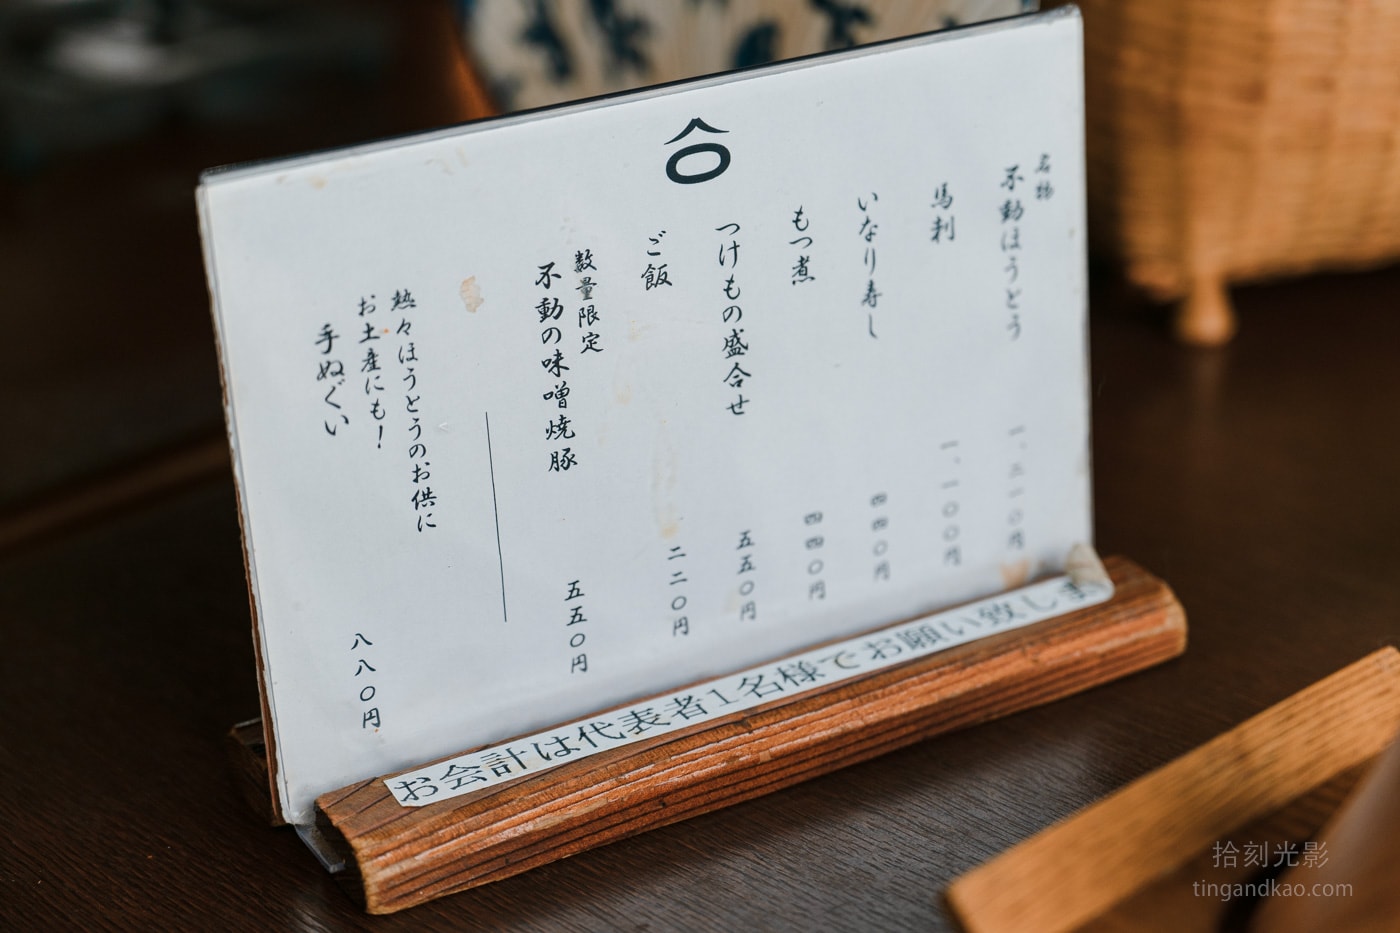 名物
不動ほうとう 一、三一〇円
馬刺 一、一〇〇円
いなり寿し 四四〇円
もつ煮 四四〇円
つけもの盛合せ 五五〇円
ご飯 二二〇円
数量限定
不動の味噌焼豚 五五〇円
熱々ほうとうのお供に
お土産にも!
手ぬぐい 八八〇円
お会計は代表者1名様でお願い致しま
拾刻光影
tingandkao.com